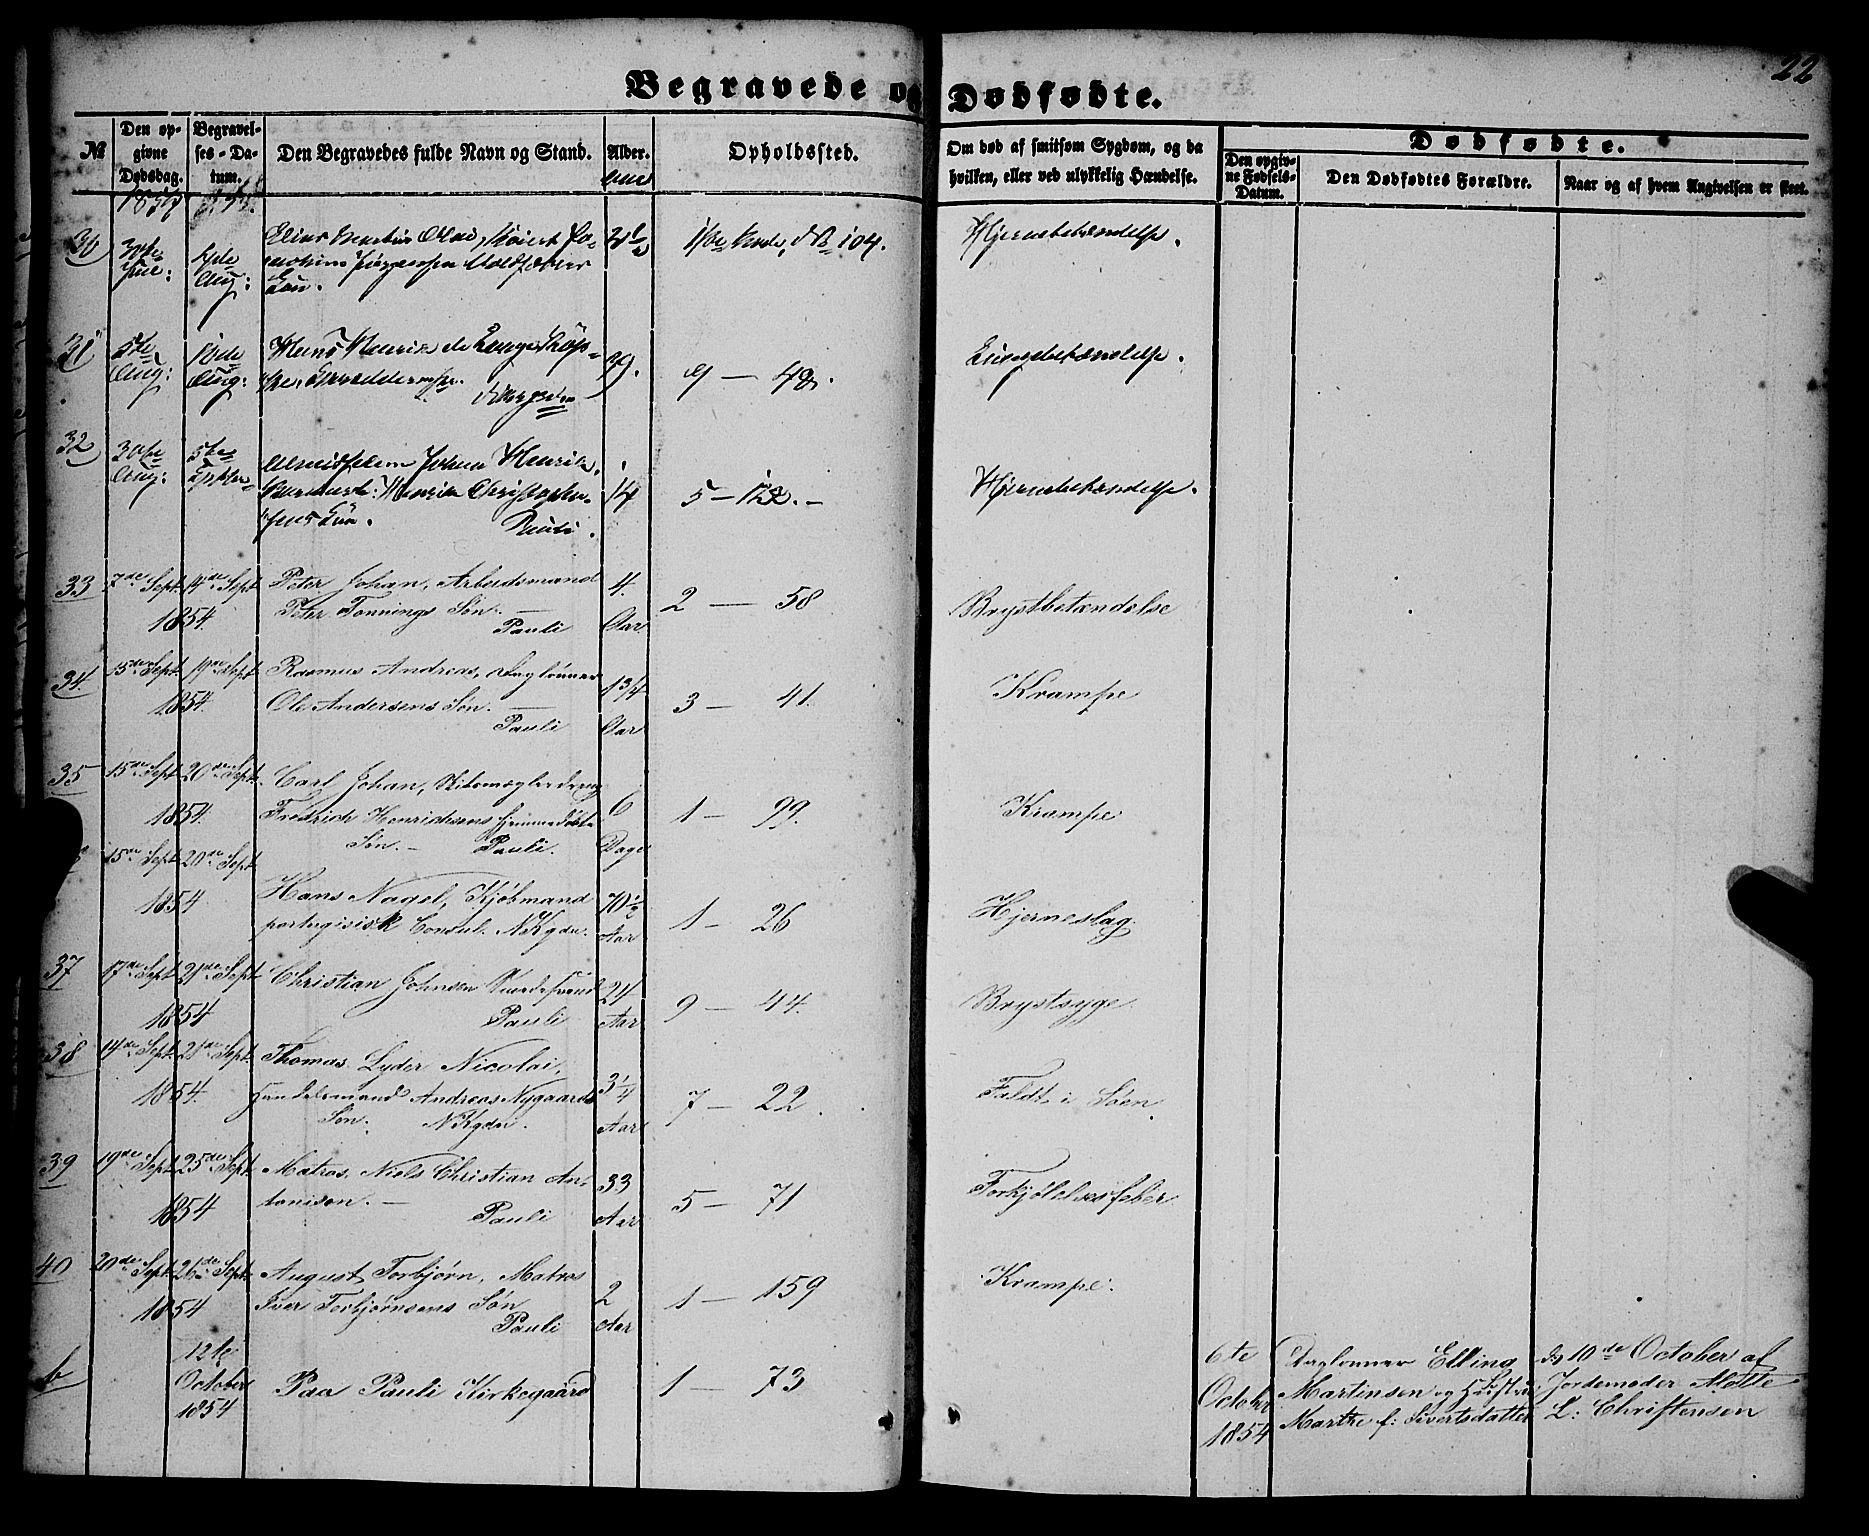 22
Begravede og Dødfødte.
№
Den opgivne Dødsdag.
Begravelses-Datum.
Den Begravedes fulde Navn og Stand.
Alder.
Opholdssted.
Om død af smitsom Sygdom, og da hvilken, eller ved ulykkelig Hændelse.
Dødfødte.
Den opgivne Fødsels-Datum.
Den Dødfødtes Forældre.
Naar og af hvem Angivelsen er skeet.
30
Aug:
Søn.
104.
Hjernebetændelse.
31
5te Aug:
10de Aug:
Hans Henrik
9 — 48.
Lungebetændelse.
32
30te Aug:
5te
Johan Henrik,
Henrik Christopher-
sens Søn.
Pauli.
14
5 —
Hjernebetændelse.
33
7de Sept. 14de Sept
1854.
Peter Johan, Arbeidsmand
Peter Tonnings Søn. —
Pauli
4. Aar.
2 — 58
Brystbetændelse
34.
15de Sept. 19de Sept
1854.
Rasmus Andreas, Daglønner
Ole Andersens Søn. —
Pauli
1 3/4 Aar
3 — 41.
Krampe
35
15de Sept 20de Sept.
1854.
Carl Johan,
Fredrich Henrichsens
Søn. — Pauli.
6 Dage
1 — 99.
Krampe
15de Sept 20de Sept
1854
Hans Nagel, Kjøbmand
portugisisk Consul. NKgdn.
70 1/2 Aar
1 — 26
Hjerneslag
37
17de Sept 21de Sept
1854
Christian Johnsen
Pauli
24 Aar
9 — 44.
Brystsyge.
38
14de Sept. 21de Sept.
1854.
Thomas Lyder Nicolai,
Handelsmand Andreas Nygaards
Søn. NKgdn.
3 1/4 Aar
7 — 22.
Faldt i Søen.
39
19de Sept. 25de Sept.
1854
Matros. Niels Christian An-
tonison. —
Pauli
33 Aar
5 — 71
Forkjølelsesfeber
40
20de Sept. 26de Sept.
1854
August Torbjørn, Matros
Iver Torbjørnsens Søn
Pauli
2 Aar
1 — 159
Krampe.
b
12te
October
1854
Paa Pauli Kirkegaard
1 — 73
6te
October
1854
Daglønner Elling
Martinsen og Hustru
Marthe f: Sivertsdatter
d. 10de October af
Jordemoder Mette
L: Christensen